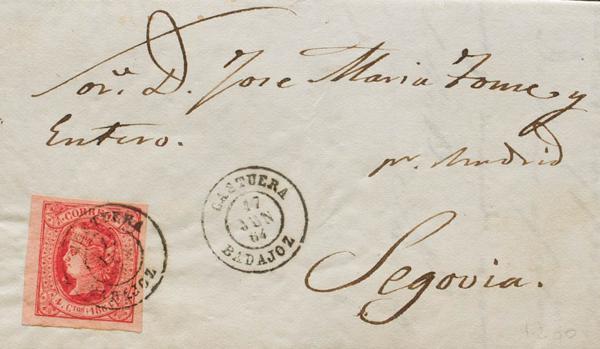 Sor. D. Jose Maria Tome y
Entero.
pr. Madrid
Segovia.
CASTUERA
17
JUN
64
BADAJOZ
CORREOS
4 Ctos 1864